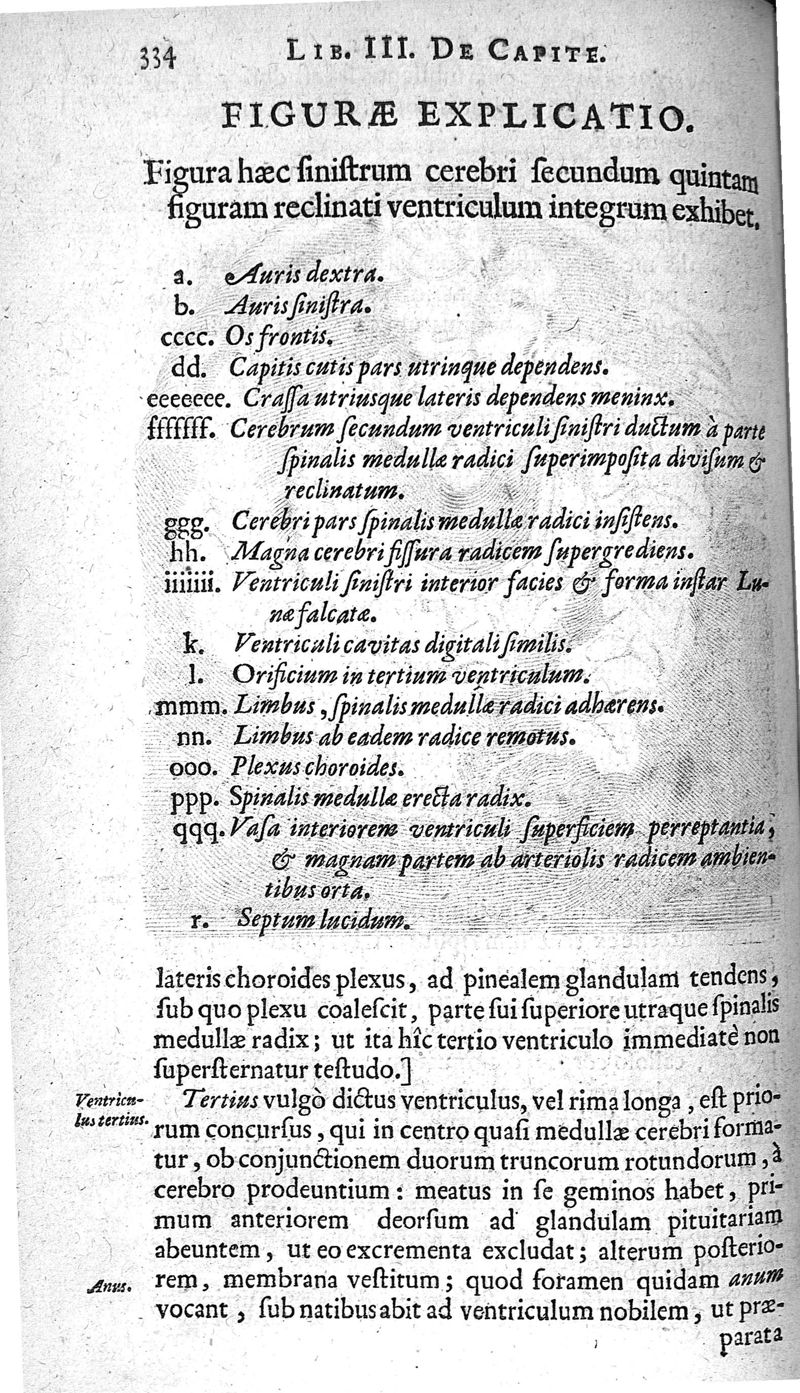 334 LIB. III. DE CAPITE.
FIGURÆ EXPLICATIO.
Figura hæc ſiniſtrum cerebri ſecundum quintam
figuram reclinati ventriculum integrum exhibet.
a. Auris dextra.
b. Auris ſiniſtra.
cccc. Os frontis.
dd. Capitis cutis pars utrinque dependens.
eeeeeee. Craſſa utriusque lateris dependens meninx.
fffffff. Cerebrum ſecundum ventriculi ſiniſtri ductum à parte
ſpinalis medullæ radici ſuperimpoſita diviſum &
reclinatum.
ggg. Cerebri pars ſpinalis medullæ radici inſiſtens.
hh. Magna cerebri fiſſura radicem ſupergrediens.
iiiiiii. Ventriculi ſiniſtri interior facies & forma inſtar Lu-
næ falcatæ.
k. Ventriculi cavitas digitali ſimilis.
l. Orificium in tertium ventriculum.
mmm. Limbus, ſpinalis medullæ radici adhærens.
nn. Limbus ab eadem radice remotus.
ooo. Plexus choroides.
ppp. Spinalis medullæ erecta radix.
qqq. Vaſa interiorem ventriculi ſuperficiem perreptantia,
& magnam partem ab arteriolis radicem ambien-
tibus orta.
r. Septum lucidum.
lateris choroides plexus, ad pinealem glandulam tendens,
ſub quo plexu coaleſcit, parte ſui ſuperiore utraque ſpinalis
medullæ radix; ut ita hîc tertio ventriculo immediatè non
ſuperſternatur teſtudo.]
Ventricu-
lus tertius.
Tertius vulgò dictus ventriculus, vel rima longa, eſt prio-
rum concurſus, qui in centro quaſi medullæ cerebri forma-
tur, ob conjunctionem duorum truncorum rotundorum, à
cerebro prodeuntium: meatus in ſe geminos habet, pri-
mum anteriorem deorſum ad glandulam pituitariam
abeuntem, ut eo excrementa excludat; alterum poſterio-
Anus.
rem, membrana veſtitum; quod foramen quidam anum
vocant, ſub natibus abit ad ventriculum nobilem, ut præ-
parata